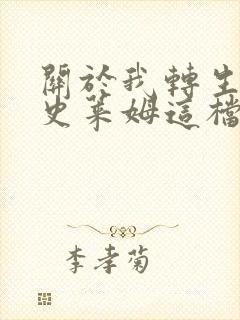 關於我轉生
史萊姆這檔
李孝菊